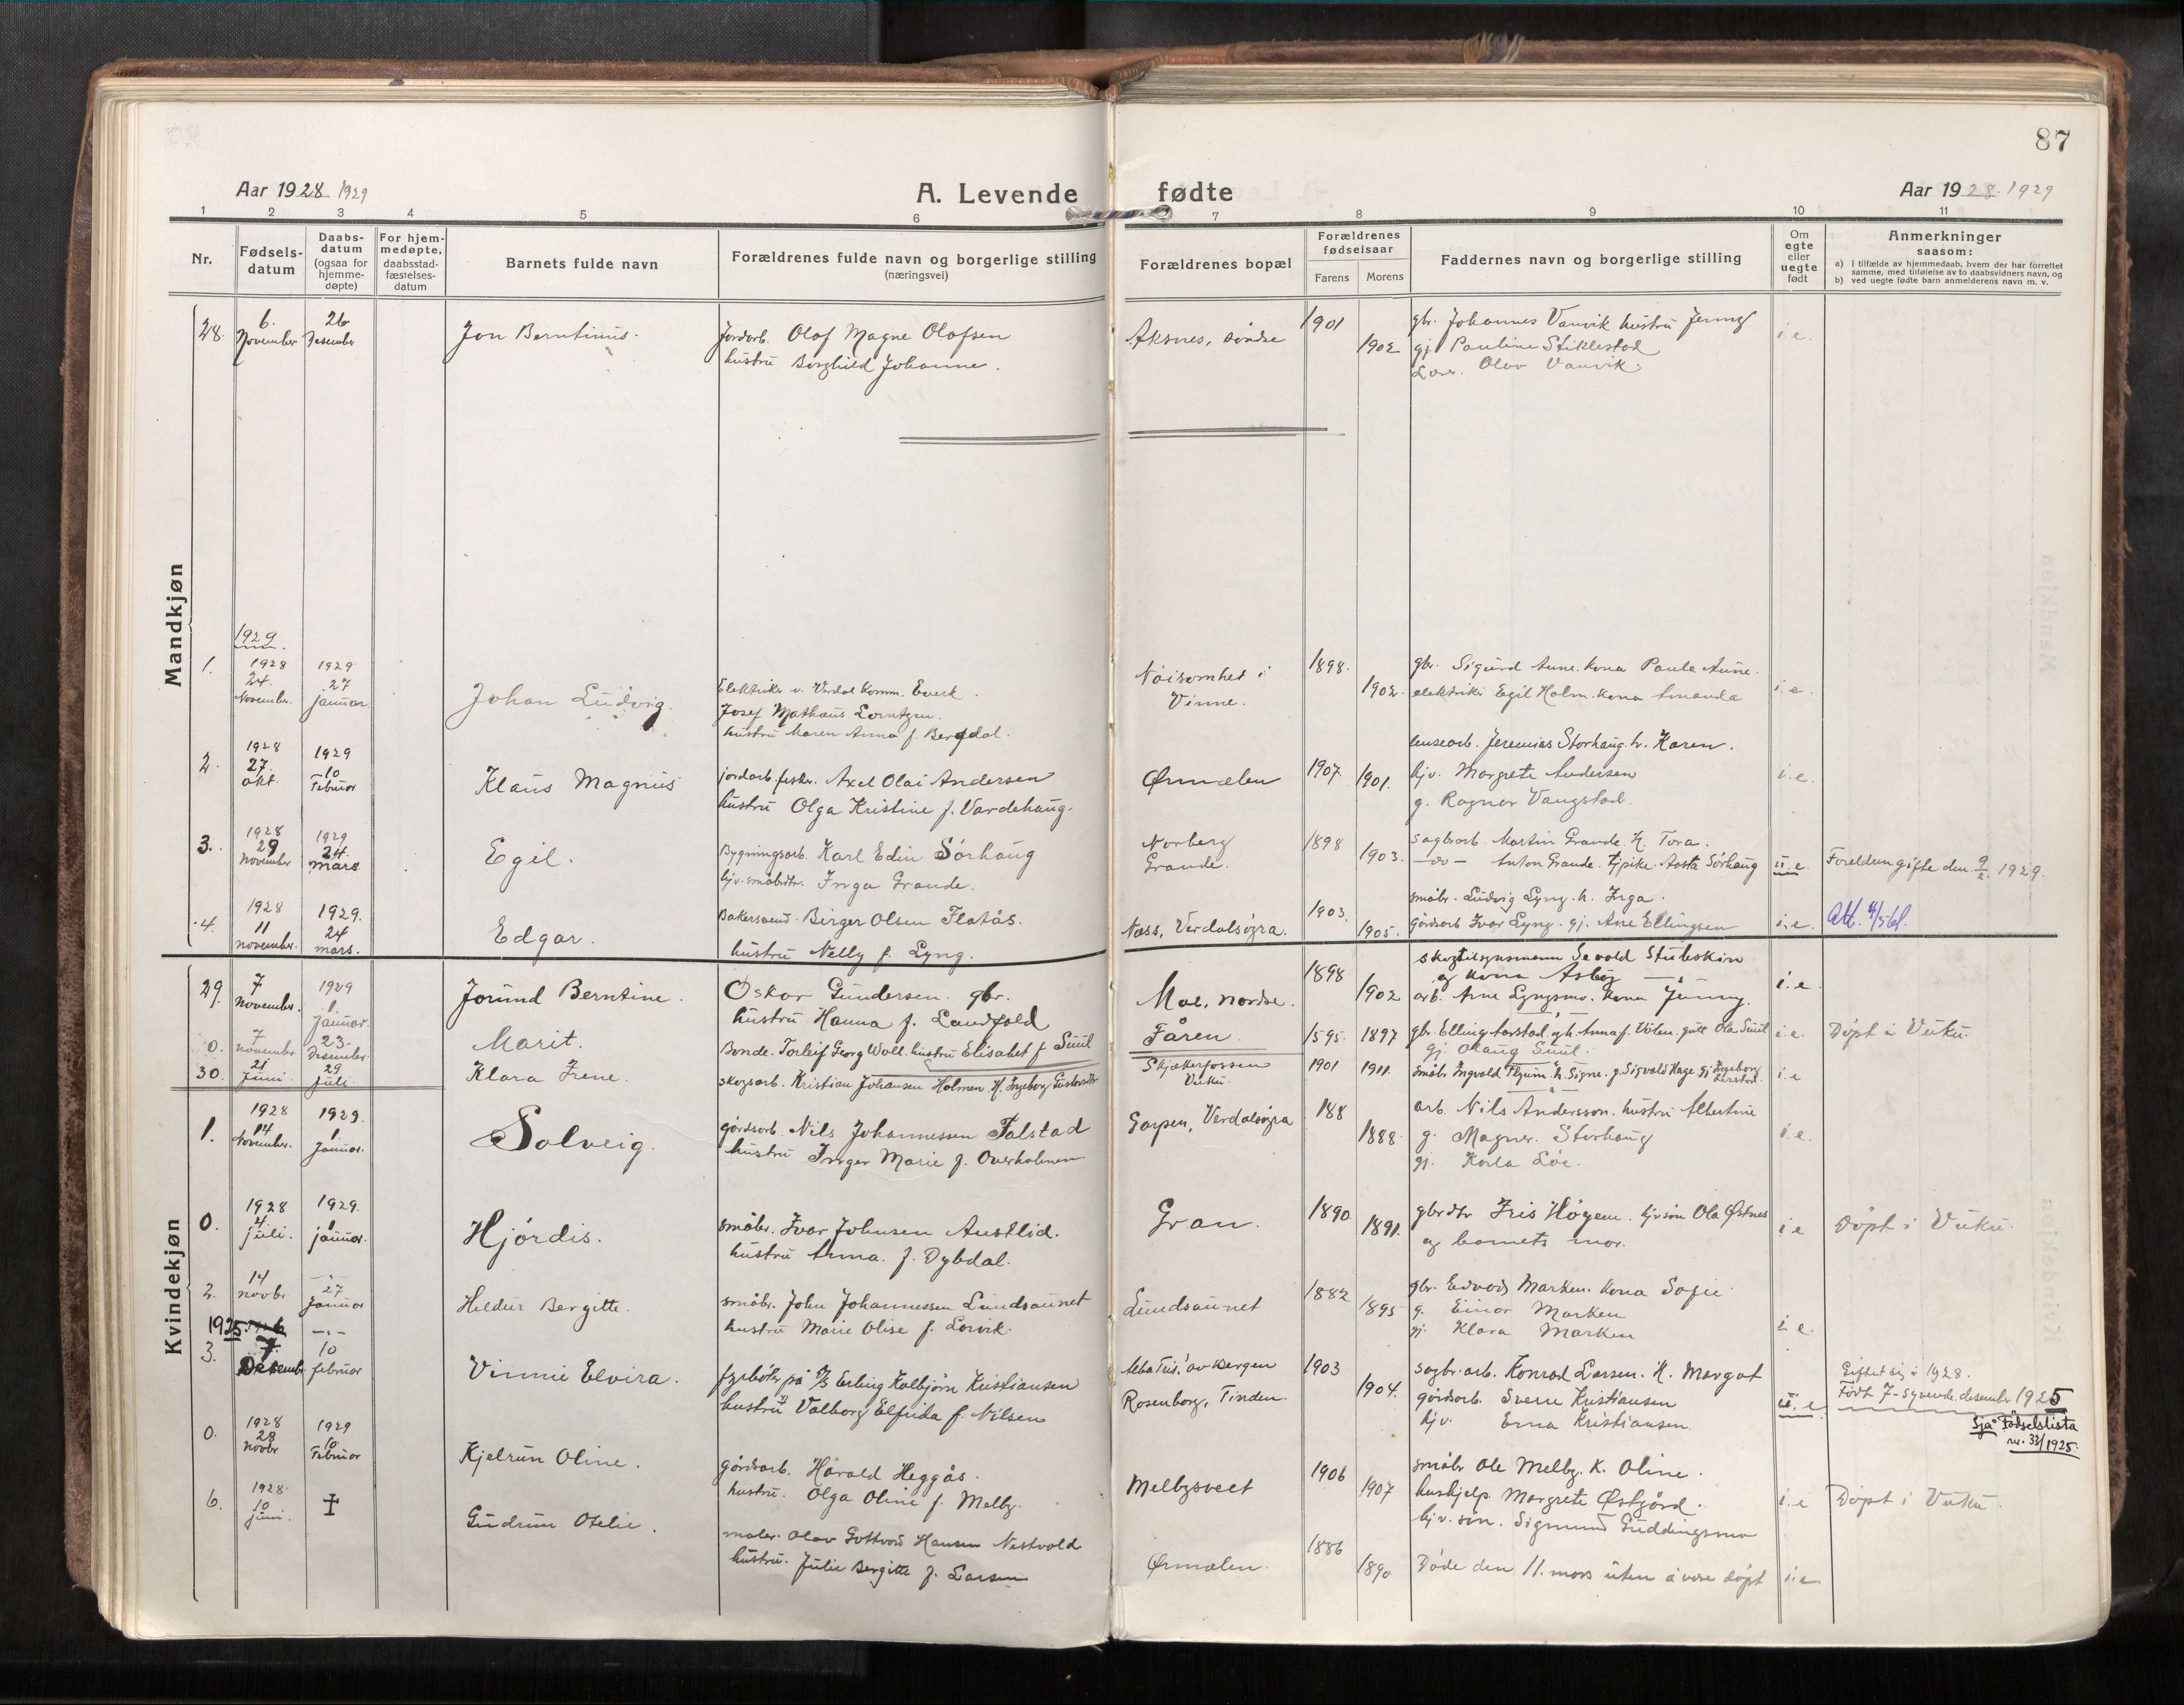 87
Aar 1928 1929
A. Levende fødte
Aar 1928. 1929
1 2 3 4 5 6 7 8 9 10 11
Nr.
Fødsels-
datum
Daabs-
datum
(ogsaa for
hjemme-
døpte)
For hjem-
medøpte,
daabsstad-
fæstelses-
datum
Barnets fulde navn
Forældrenes fulde navn og borgerlige stilling
(næringsvei)
Forældrenes bopæl
Forældrenes
fødselsaar
Farens Morens
Faddernes navn og borgerlige stilling
Om
egte
eller
uegte
født
Anmerkninger
saasom:
a) i tilfælde av hjemmedaab, hvem der har forrettet
samme, med tilføielse av to daabsvidners navn, og
b) ved uegte fødte barn anmelderens navn m. v.
Mandkjøn
28.
6.
November
26
Desember
Jon Berntinus.
Jordarb. Olaf Magne Olafsen
hustru Borghild Johanne.
Aksnes, søndre
1901
1902
gbr. Johannes Vanvik hustru Jenny
gj Pauline Stiklestad
Lærer. Olav Vanvik.
i.e.
1929
1.
1928
24.
November.
1929
27
januar
Johan Ludvig.
Elektriker v. Verdal Komm. Everk.
Josef Mathæus Lorntzen.
hustru Maren Anna f. Bergdal.
Nøisomhet i
Vinne.
1898.
1902.
gbr. Sigurd Aune. kona Paula Aune.
elektriker Egil Holm. kona Amanda
i.e.
2.
1928
27.
okt.
1929
10
Februar
Klaus Magnus
jordarb. fisker. Axel Olai Andersen
hustru Olga Kristine f. Vardehaug.
Ørmælen
1907.
1901.
lensearb. Jeremias Storhaug. h. Karen.
hjv. Margrete Andersen
g. Ragnar Vangstad.
i.e.
3.
1928
29
November
1929
24.
mars
Egil.
Bygningsarb. Karl Edin Sørhaug
hjv. småbrdtr. Inga Grande.
Norberg
Grande.
1898
1903.
Sagbrarb. Martin Grande. H. Tora.
—do— Anton Grande. tjpike. Aasta Sörhaug
u.e.
Foreldrene gifte den 9/2. 1929.
4.
1928
11
november.
1929.
24
mars.
Edgar.
Bakersvend. Birger Olsen Flatås.
hustru Nelly f. Lyng.
Næss, Verdalsøra.
1903.
1905.
småbr. Ludvig Lyng. h. Inga.
Gårdsarb Ivar Lyng. gj. Ane Ellingsen
i.e.
Att. 4/5 61.
Kvindekjøn
29.
7
November.
1929
1.
Januar.
Jorund Berntine.
Oskar Gundersen. gbr.
hustru Hanna f. Landfald
Moe, nordre.
1898
1902
skogtilsynsmann Sevald Stubskin
og kona Asbjg
arb. Arne Lyngsmo. kona Jenny.
i.e.
0.
7
November.
23.
Desember
Marit.
Bonde. Torleif Georg Woll. hustru Elisabet f Suul
Fåren
1895
1897
gbr. Elling Aarstad og h. Anna f. Viken. gutt Ola Suul
gj. Olaug Suul.
i.e.
Døpt i Vuku.
30.
21
Juni.
29
Juli
Klara Irene.
skogsarb. Kristian Johansen Holmen H. Ingeborg Gustavsdtr
Skjækerfossen
Vuku.
1901
1911.
småbr Ingvald Flyum. h. Signe. g. Sigvald Hage gj Ingeborg
i.e
1.
1928
14
November.
1929.
1.
Januar.
Solveig.
gårdsarb. Nils Johannessen Falstad
hustru Inger Marie f. Overholmen
Garpen, Verdalsøra
188
1888.
arb. Nils Andersson. hustru Albertine
g. Magnar. Storhaug
gj. Karla Löe.
i.e.
0.
1928
4.
juli.
1929.
1
januar.
Hjördis.
småbr. Ivar Johnsen Austlid.
hustru Anna. f. Dybdal.
Gran.
1890
1891.
gbrdtr Iris Höyem. hjvsön Ola Østnes
og barnets mor.
i e
Döpt i Vuku.
2.
14
novbr
27
Januar
Hildur Bergitte.
småbr. John Johannessen Lundsaunet
hustru Marie Olise f. Lorvik.
Lundsaunet
1882
1895
gbr. Edvard Marken. kona Sofie
g. Einar Marken
gj. Klara Marken
i e.
3.
1925.
7.
Desembr
10
februar
Vinnie Elvira.
fyrböter på D/S Erling Kolbjörn Kristiansen
hustru Valborg Elfrida f. Nilsen
av Bergen
Rosenborg, Tinden.
1903
1904.
sagbr. arb. Konrad Larsen. H. Margot
gårdsarb. Sverre Kristiansen
hjv. Erna Kristiansen
u. e.
Giftet sig i 1928.
Född 7-syvende desember 1925
Sjå Födselslista
nr. 33/1925.
0.
1928
28
Novbr
1929
10
Februar
Kjelrun Oline.
gårdsarb. Harald Heggås.
hustru. Olga Oline f. Melby.
Melbysveet
1906
1907
småbr Ole Melby. K. Oline.
hushjelp. Margrete Østgård.
hjv. sön. Sigmund Guddingsmo
i. e
Döpt i Vuku.
6.
1928.
10
juni.
Gudrun Otelie.
maler. Olav Gottvard Hansen Nestvold
hustru. Julie Bergitte f. Larsen
Ørmælen.
1886
1890
Döde den 11. mars uten å være döpt
i.e